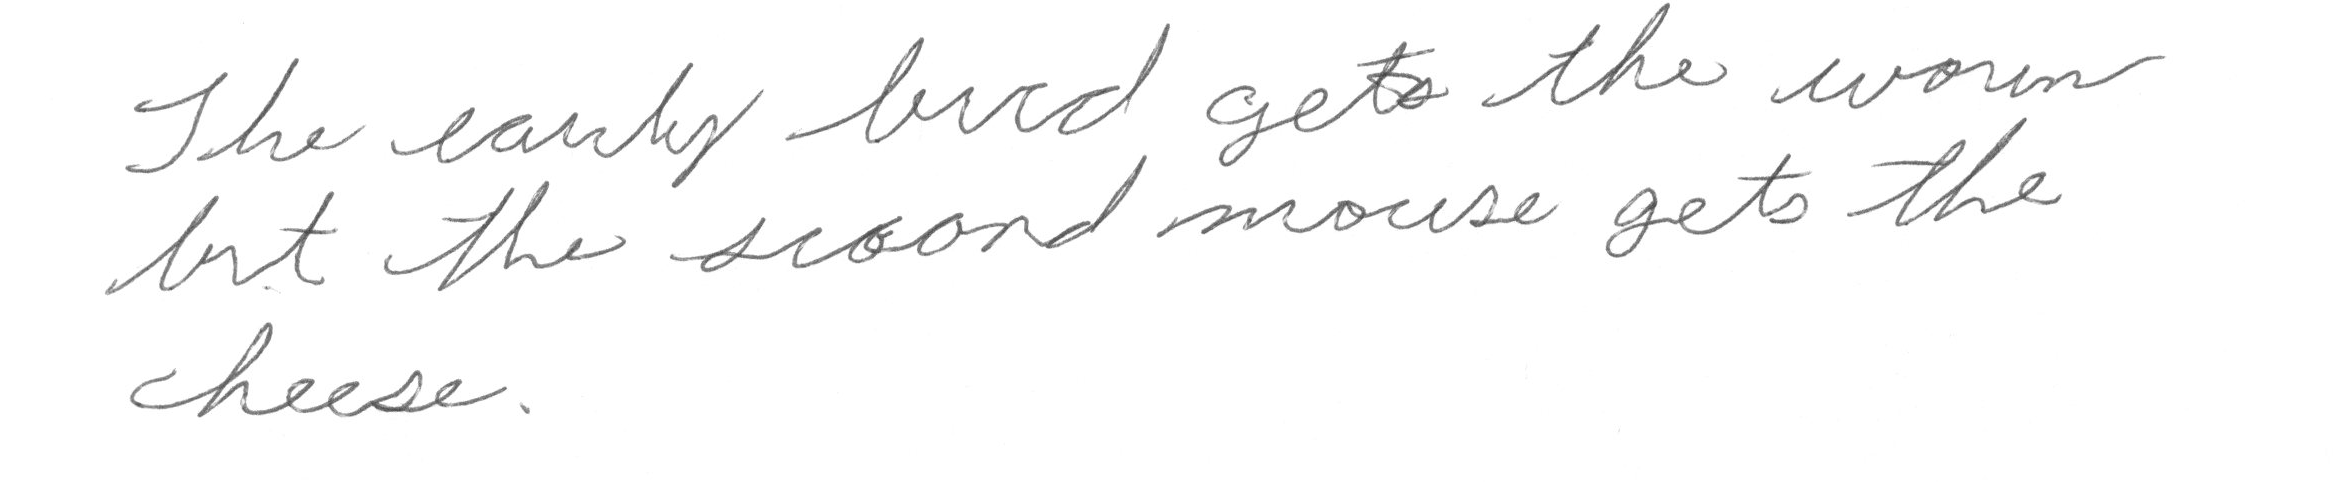 The early bird gets the worm
but the second mouse gets the
cheese.